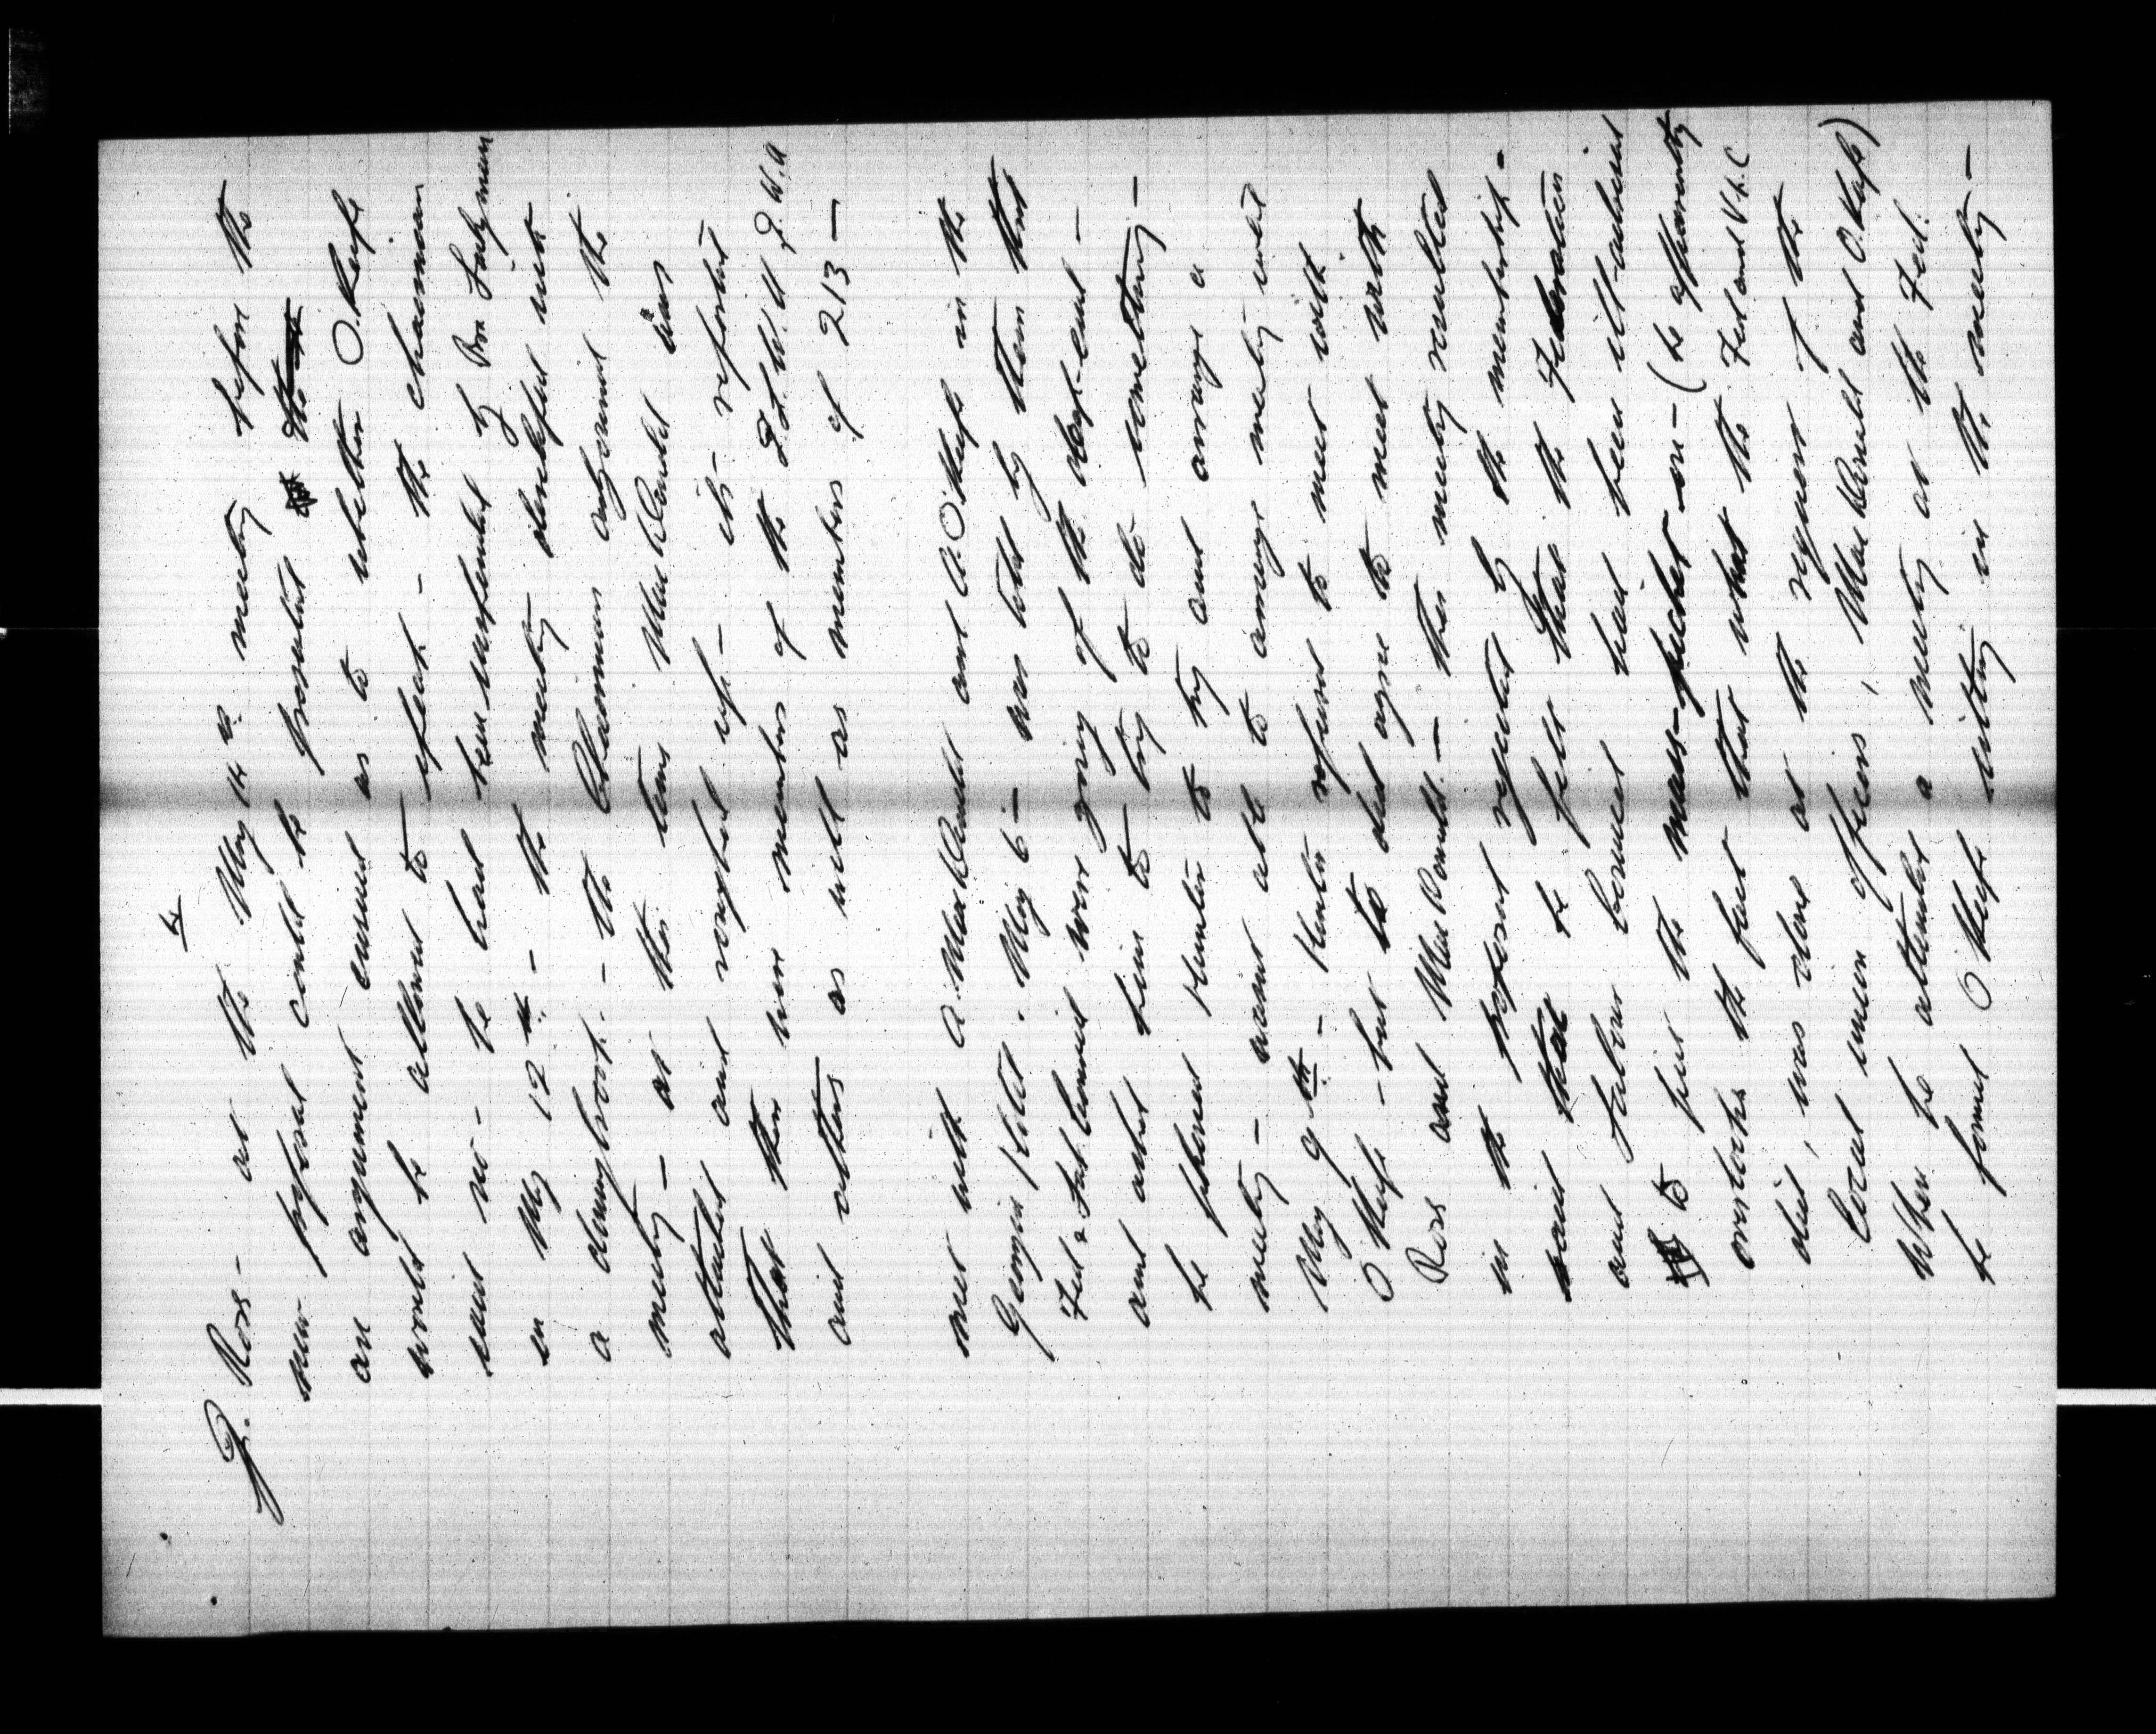 4
J. Ross - at the May 11th meeting before the
new proposal could be presented
an argument ensued as to whether O'Keefe
would be allowed to speak - the chairman
said no - he had been suspended by Bro
on May 12th - the meeting
a - the Chairman adjourned the
meeting - at this time MacDonald was
attended and roughed up - it's reported
that there were members of the I.L.W.U I.W.A
and others as well as members of 213 -
met with A. MacDonald and A. O'Keefe in the
Georgia Hotel. May 6 - was told by them that
Fed & Lab. Council were going of the deep-end -
and asked him to try to do something -
he phoned Hunter to try and arrange a
meeting - wasnt able to arrange meeting until
May 9th - Hunter refused to meet with
O'Keefe - but did agree to meet with
Ross and MacDonald - this meeting resulted
in the proposal rejected by the membership -
said that he felt that the Federation
and Labour Council had been ill-advised
to put the mass-picket on - (he apparently
overlooks the fact that what the Fed and V.L.C
did, was done at the request of the
Local union officers, MacDonald and O'Keefe)
When he attended a meeting at the Fed.
he found O'Keefe sitting in the meeting -